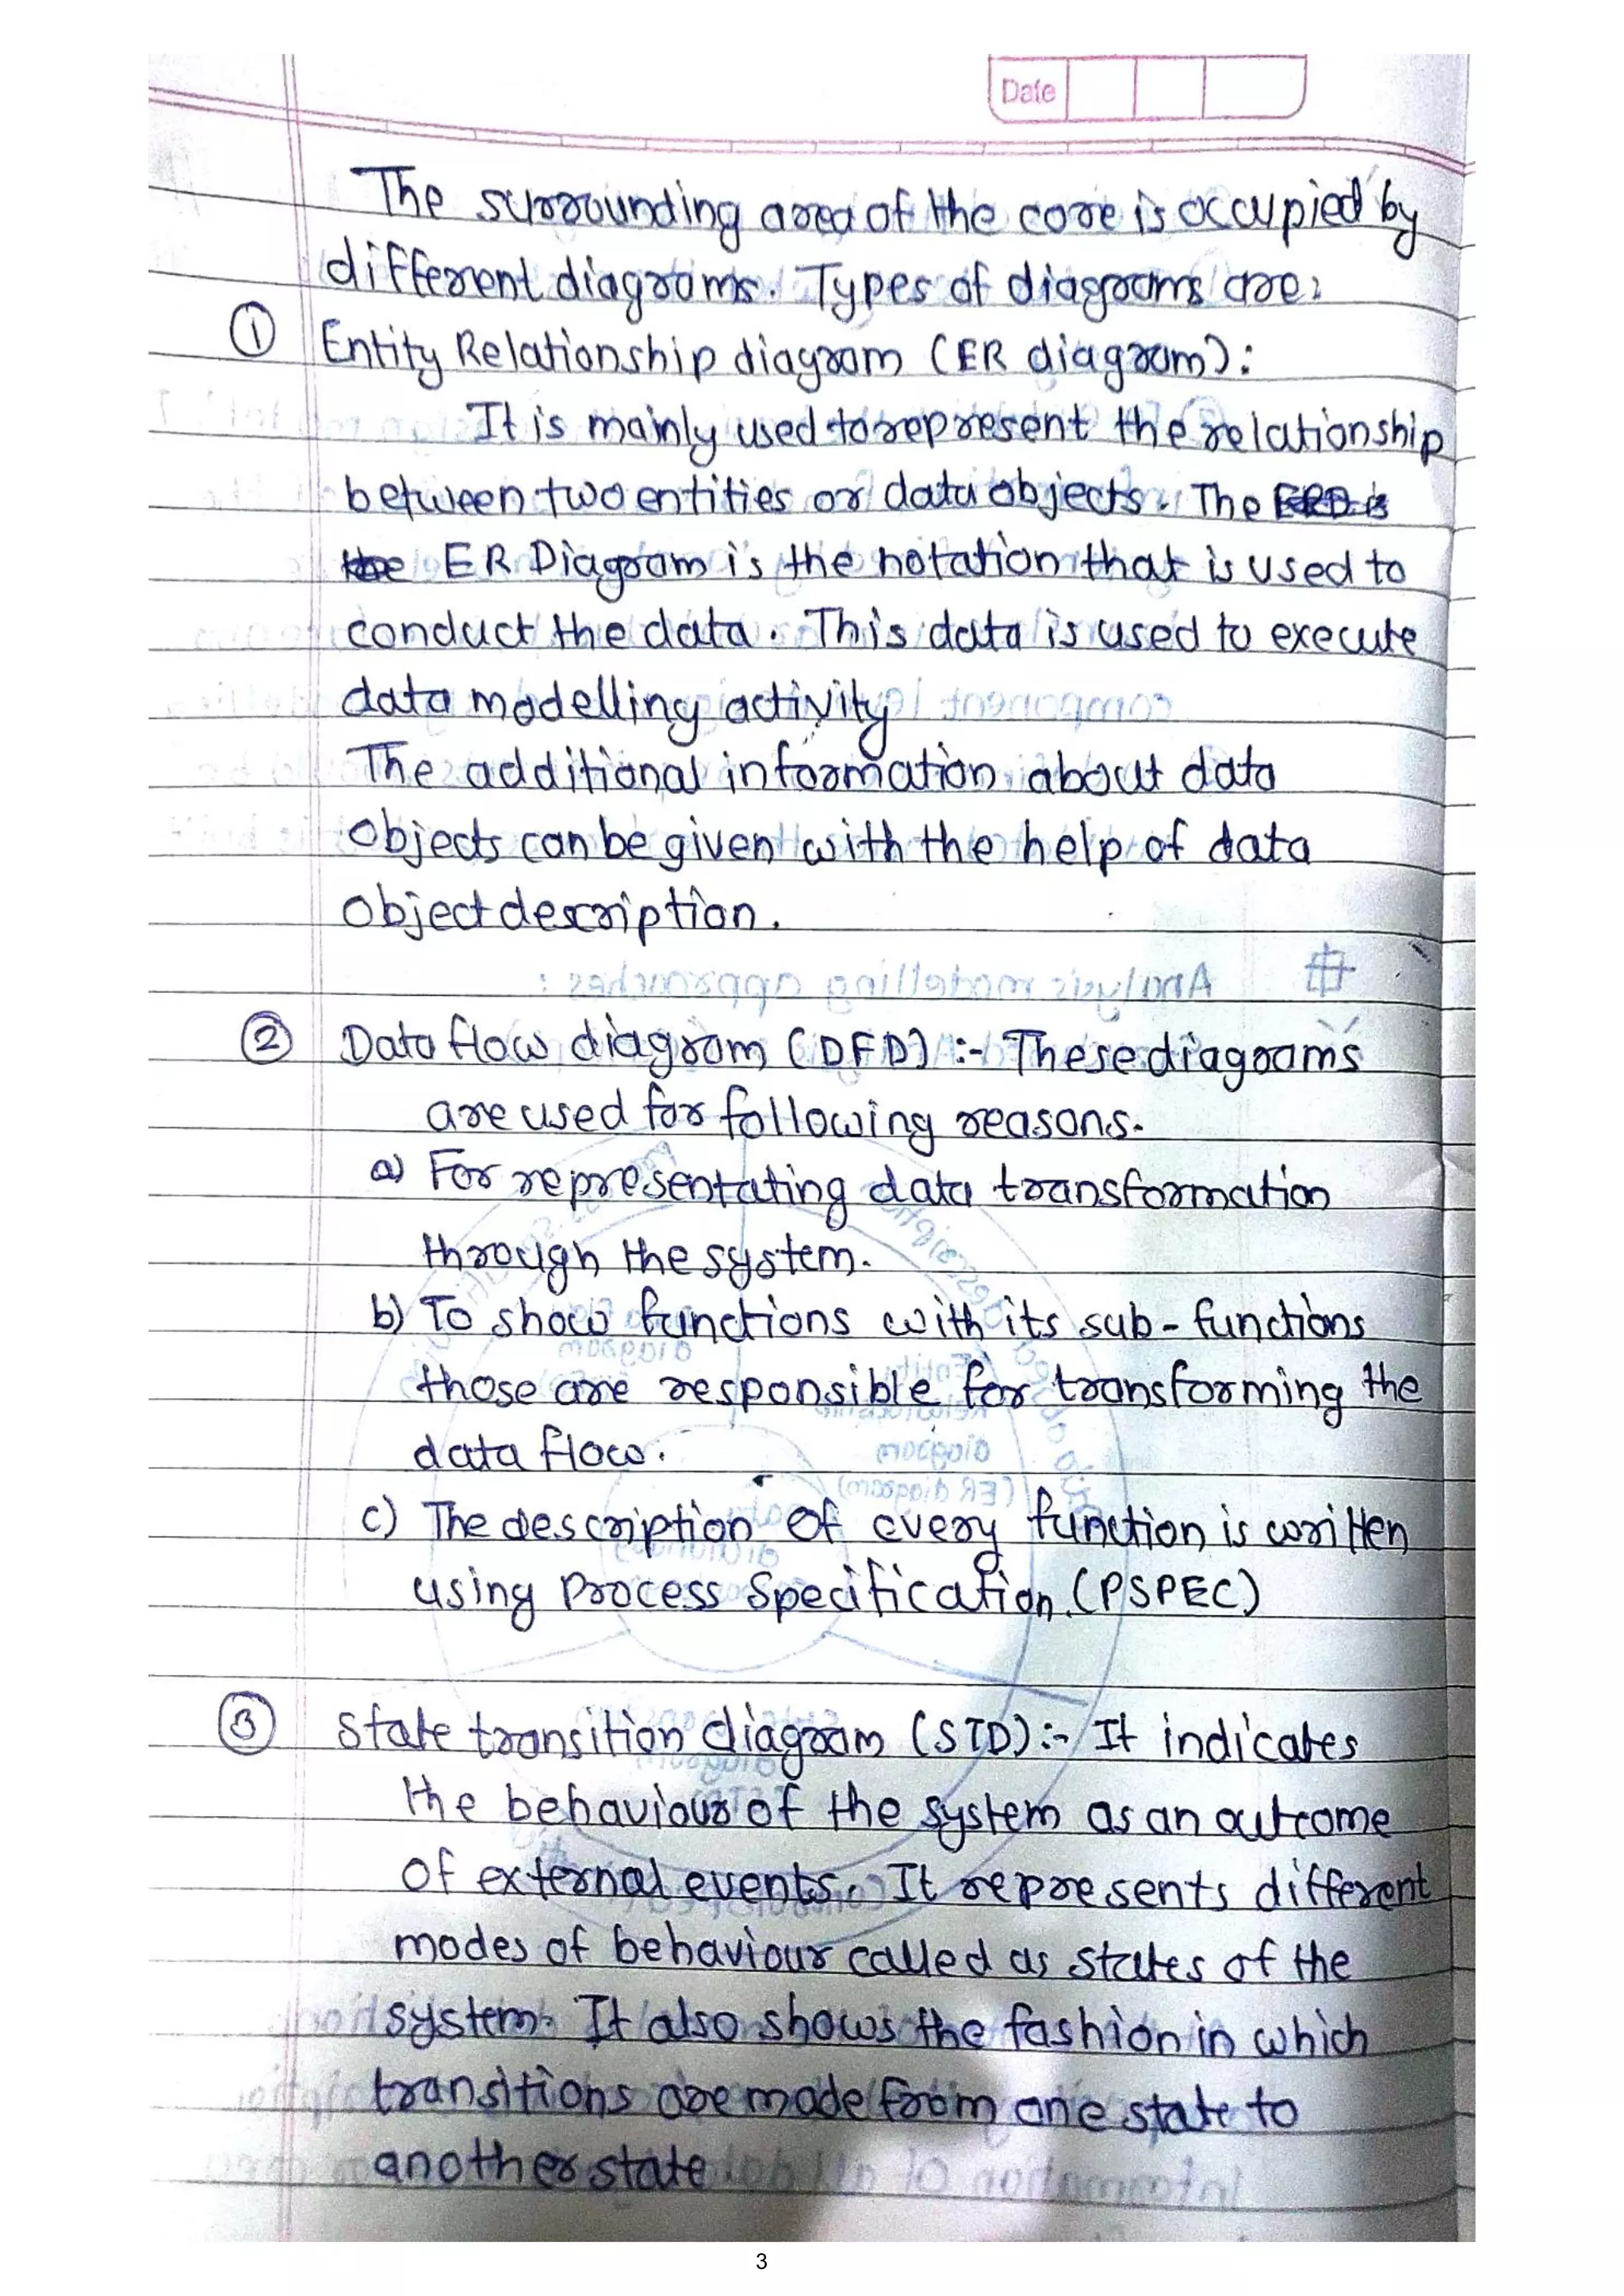 Date
The surrounding area of the core is occupied by
different diagrams. Types of diagrams are:
① Entity Relationship diagram (ER diagram):
It is mainly used to represent the relationship
between two entities or data objects. The ERD is
the ER Diagram is the notation that is used to
conduct the data. This data is used to execute
data modelling activity
The additional information about data
objects can be given with the help of data
object description.
② Data flow diagram (DFD) :- These diagrams
are used for following reasons.
a) For representating data transformation
through the system.
b) To show functions with its sub-functions
those are responsible for transforming the
data flow.
c) The description of every function is written
using Process Specification. (PSPEC)
③ State transition diagram (STD):- It indicates
the behaviour of the system as an outcome
of external events. It represents different
modes of behaviour called as states of the
system. It also shows the fashion in which
transitions are made from one state to
another state
3